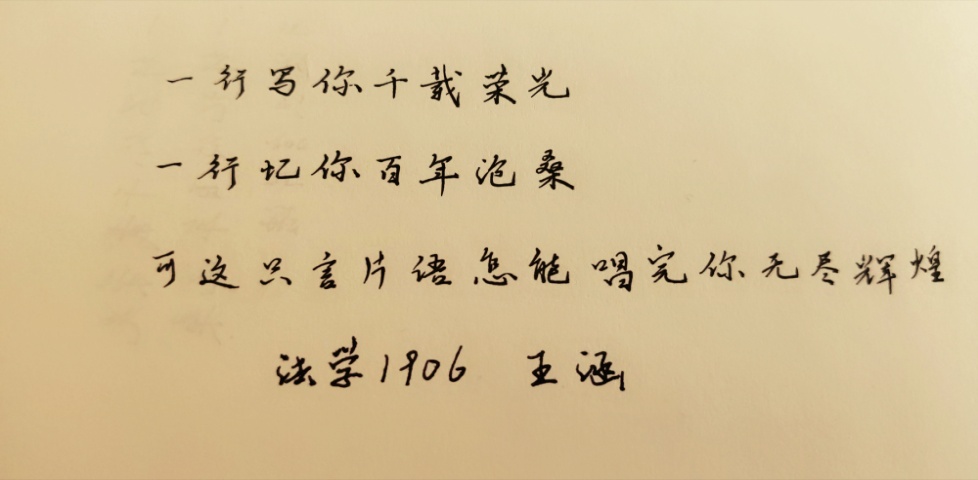 一行写你千载荣光
一行忆你百年沧桑
可这只言片语怎能唱完你无尽辉煌
法学1906 王涵